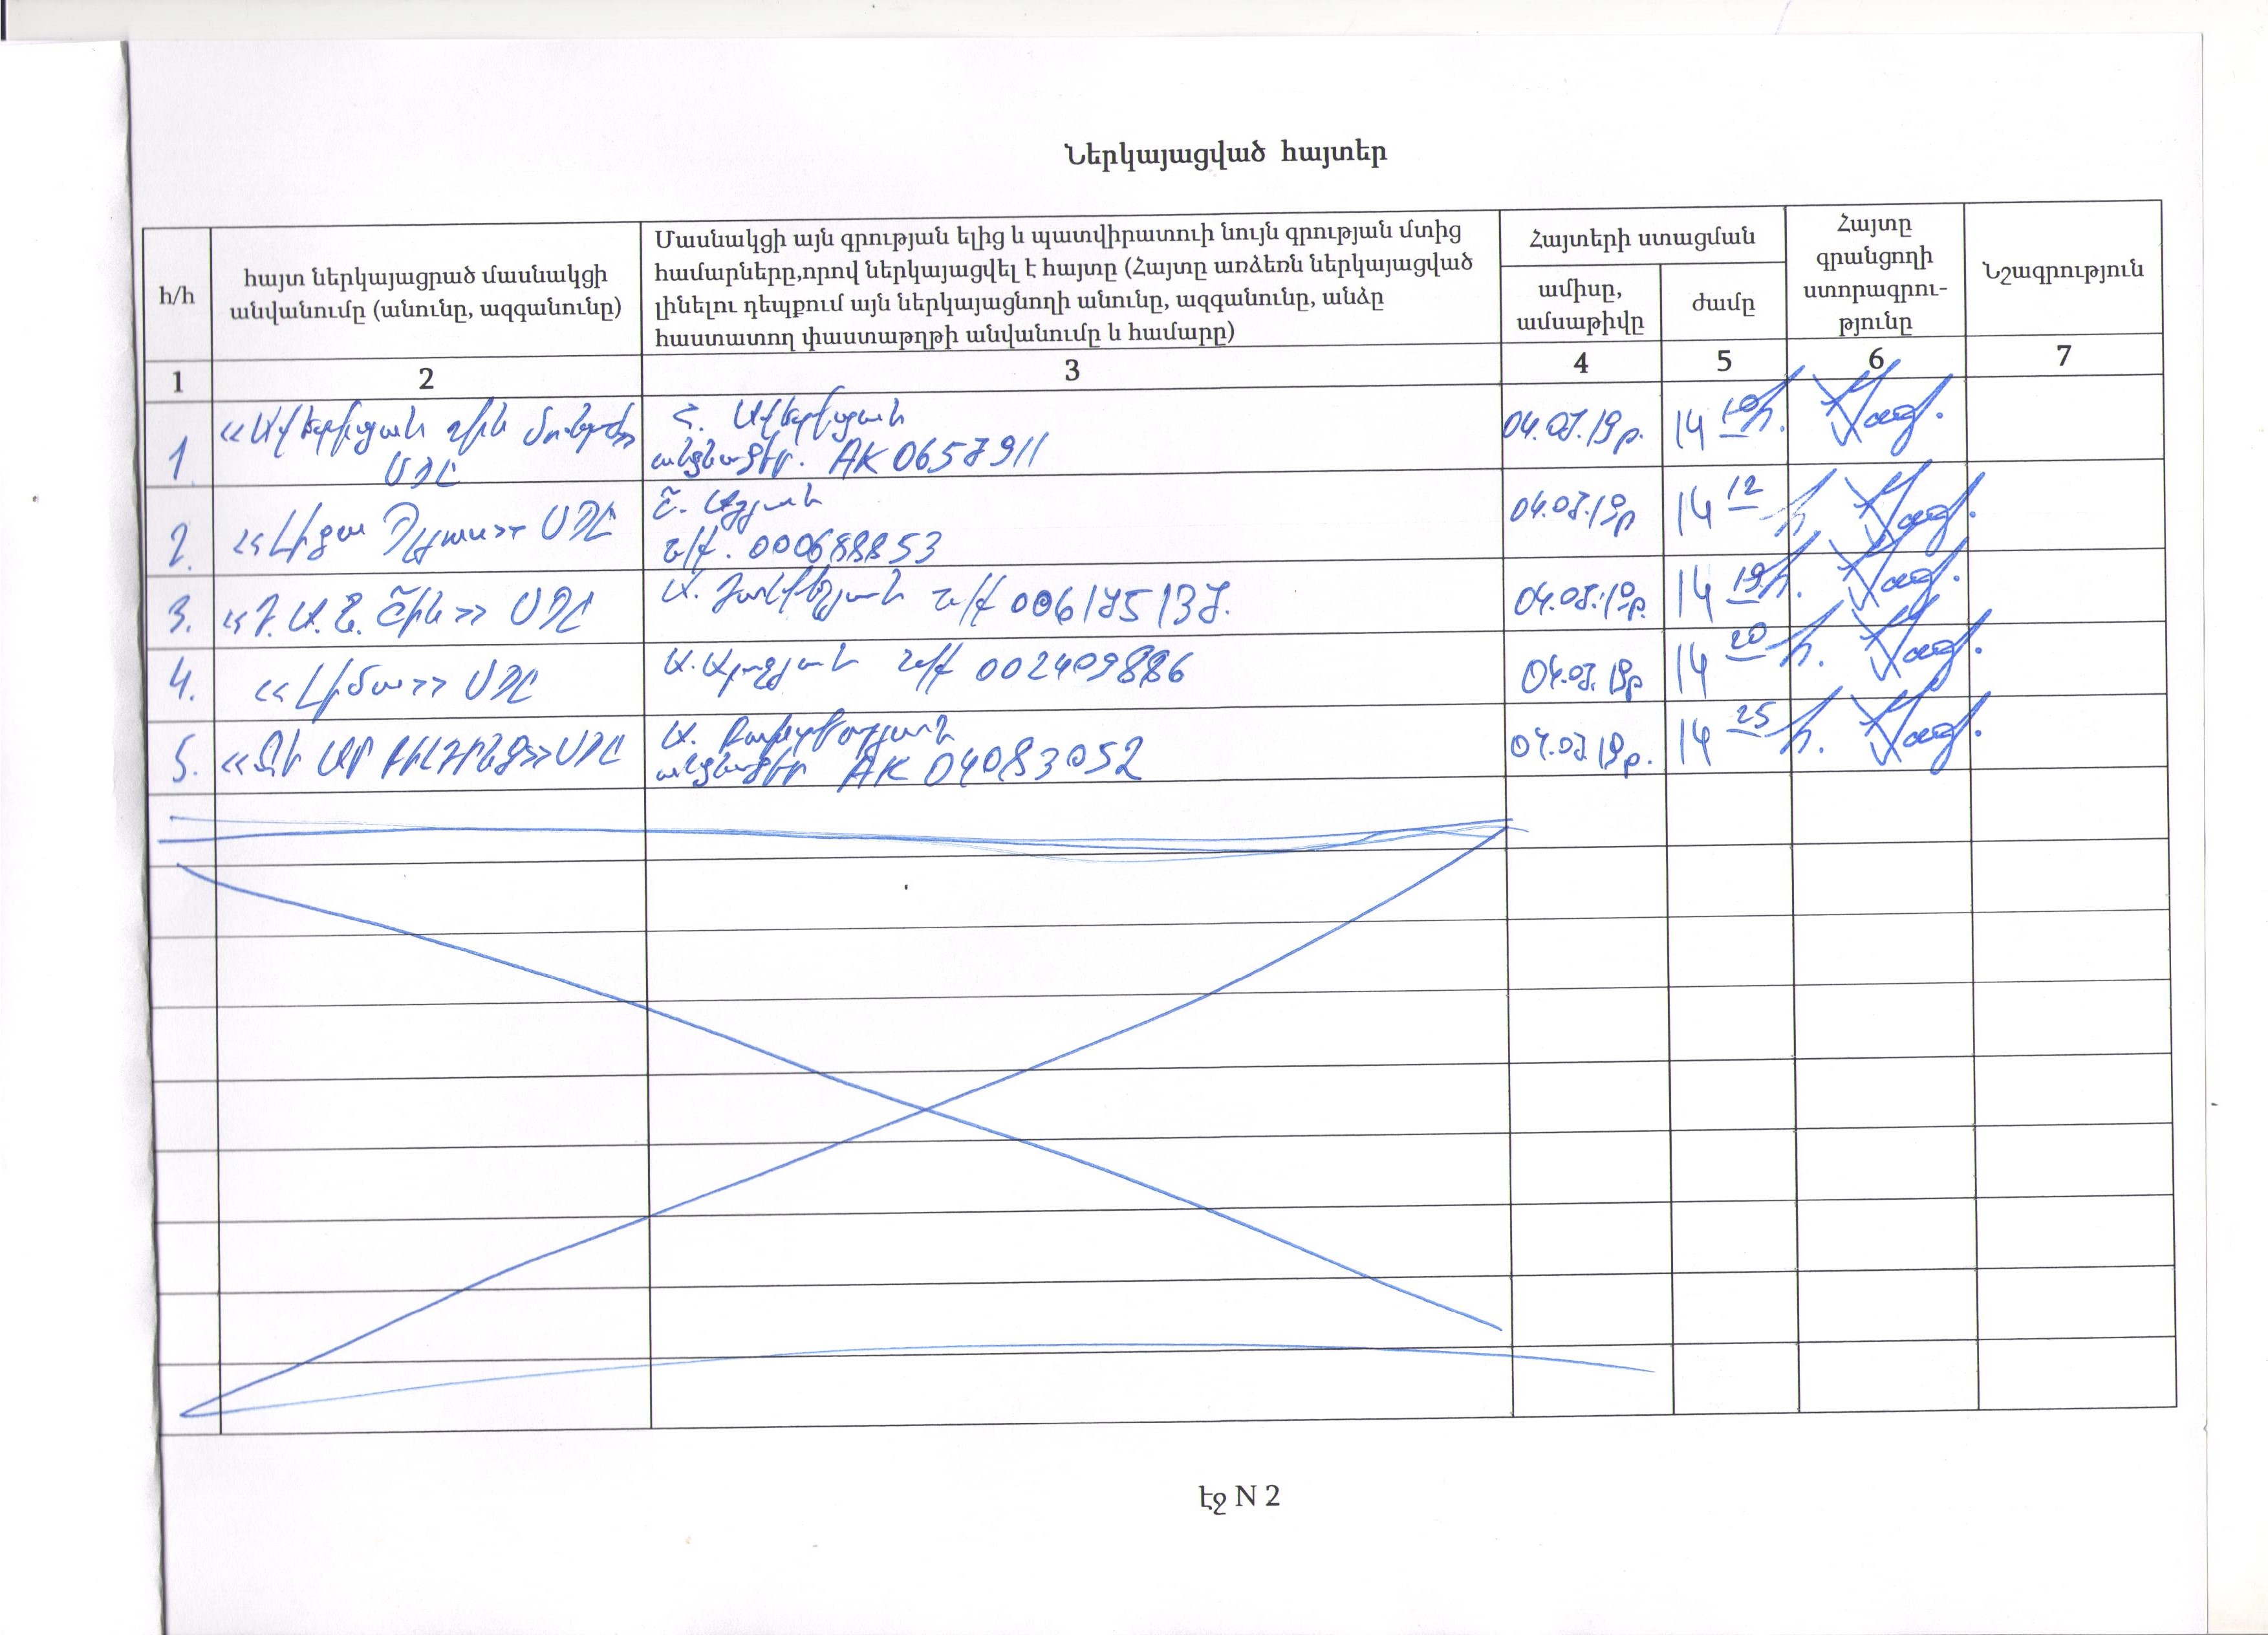 Ներկայացված հայտեր
հ/հ
հայտ ներկայացրած մասնակցի
անվանումը (անունը, ազգանունը)
Մասնակցի այն գրության ելից և պատվիրատուի նույն գրության մտից
համարները,որով ներկայացվել է հայտը (Հայտը առձեռն ներկայացված
լինելու դեպքում այն ներկայացնողի անունը, ազգանունը, անձը
հաստատող փաստաթղթի անվանումը և համարը)
Հայտերի ստացման
ամիսը,
ամսաթիվը
ժամը
Հայտը
գրանցողի
ստորագրու-
թյունը
Նշագրություն
1 2 3 4 5 6 7
1.
ՍՊԸ
Հ.
AK 0657911
04.07.19թ.
14 10
2. <<Լիգա Պլյուս>> ՍՊԸ
Շ.
ն/ք. 000688853
04.07.19թ
14 12
3. <<Դ.Ա.Ն. Շին>> ՍՊԸ
Ա. ն/ք 006175137.
04.07.19թ.
14 19
4. <<Լիմա>> ՍՊԸ
Ա. ն/ք 002409886
04.07.19թ
14 20
5. ՍՊԸ
Ա.
AK 04083052
04.07 19թ.
14 25
էջ N 2